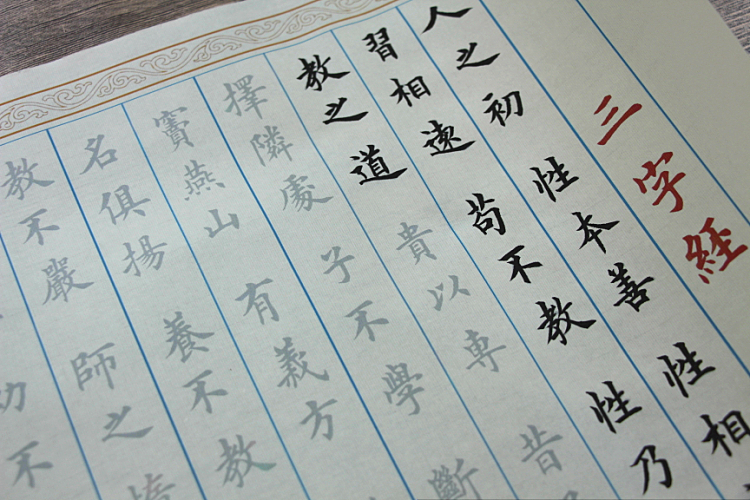 三字経
人之初 性本善 性相
習相遠 苟不教 性乃
教之道 貴以専 昔
擇隣處 子不學 斷
竇燕山 有義方
名俱揚 養不教
教不嚴 師之
幼不